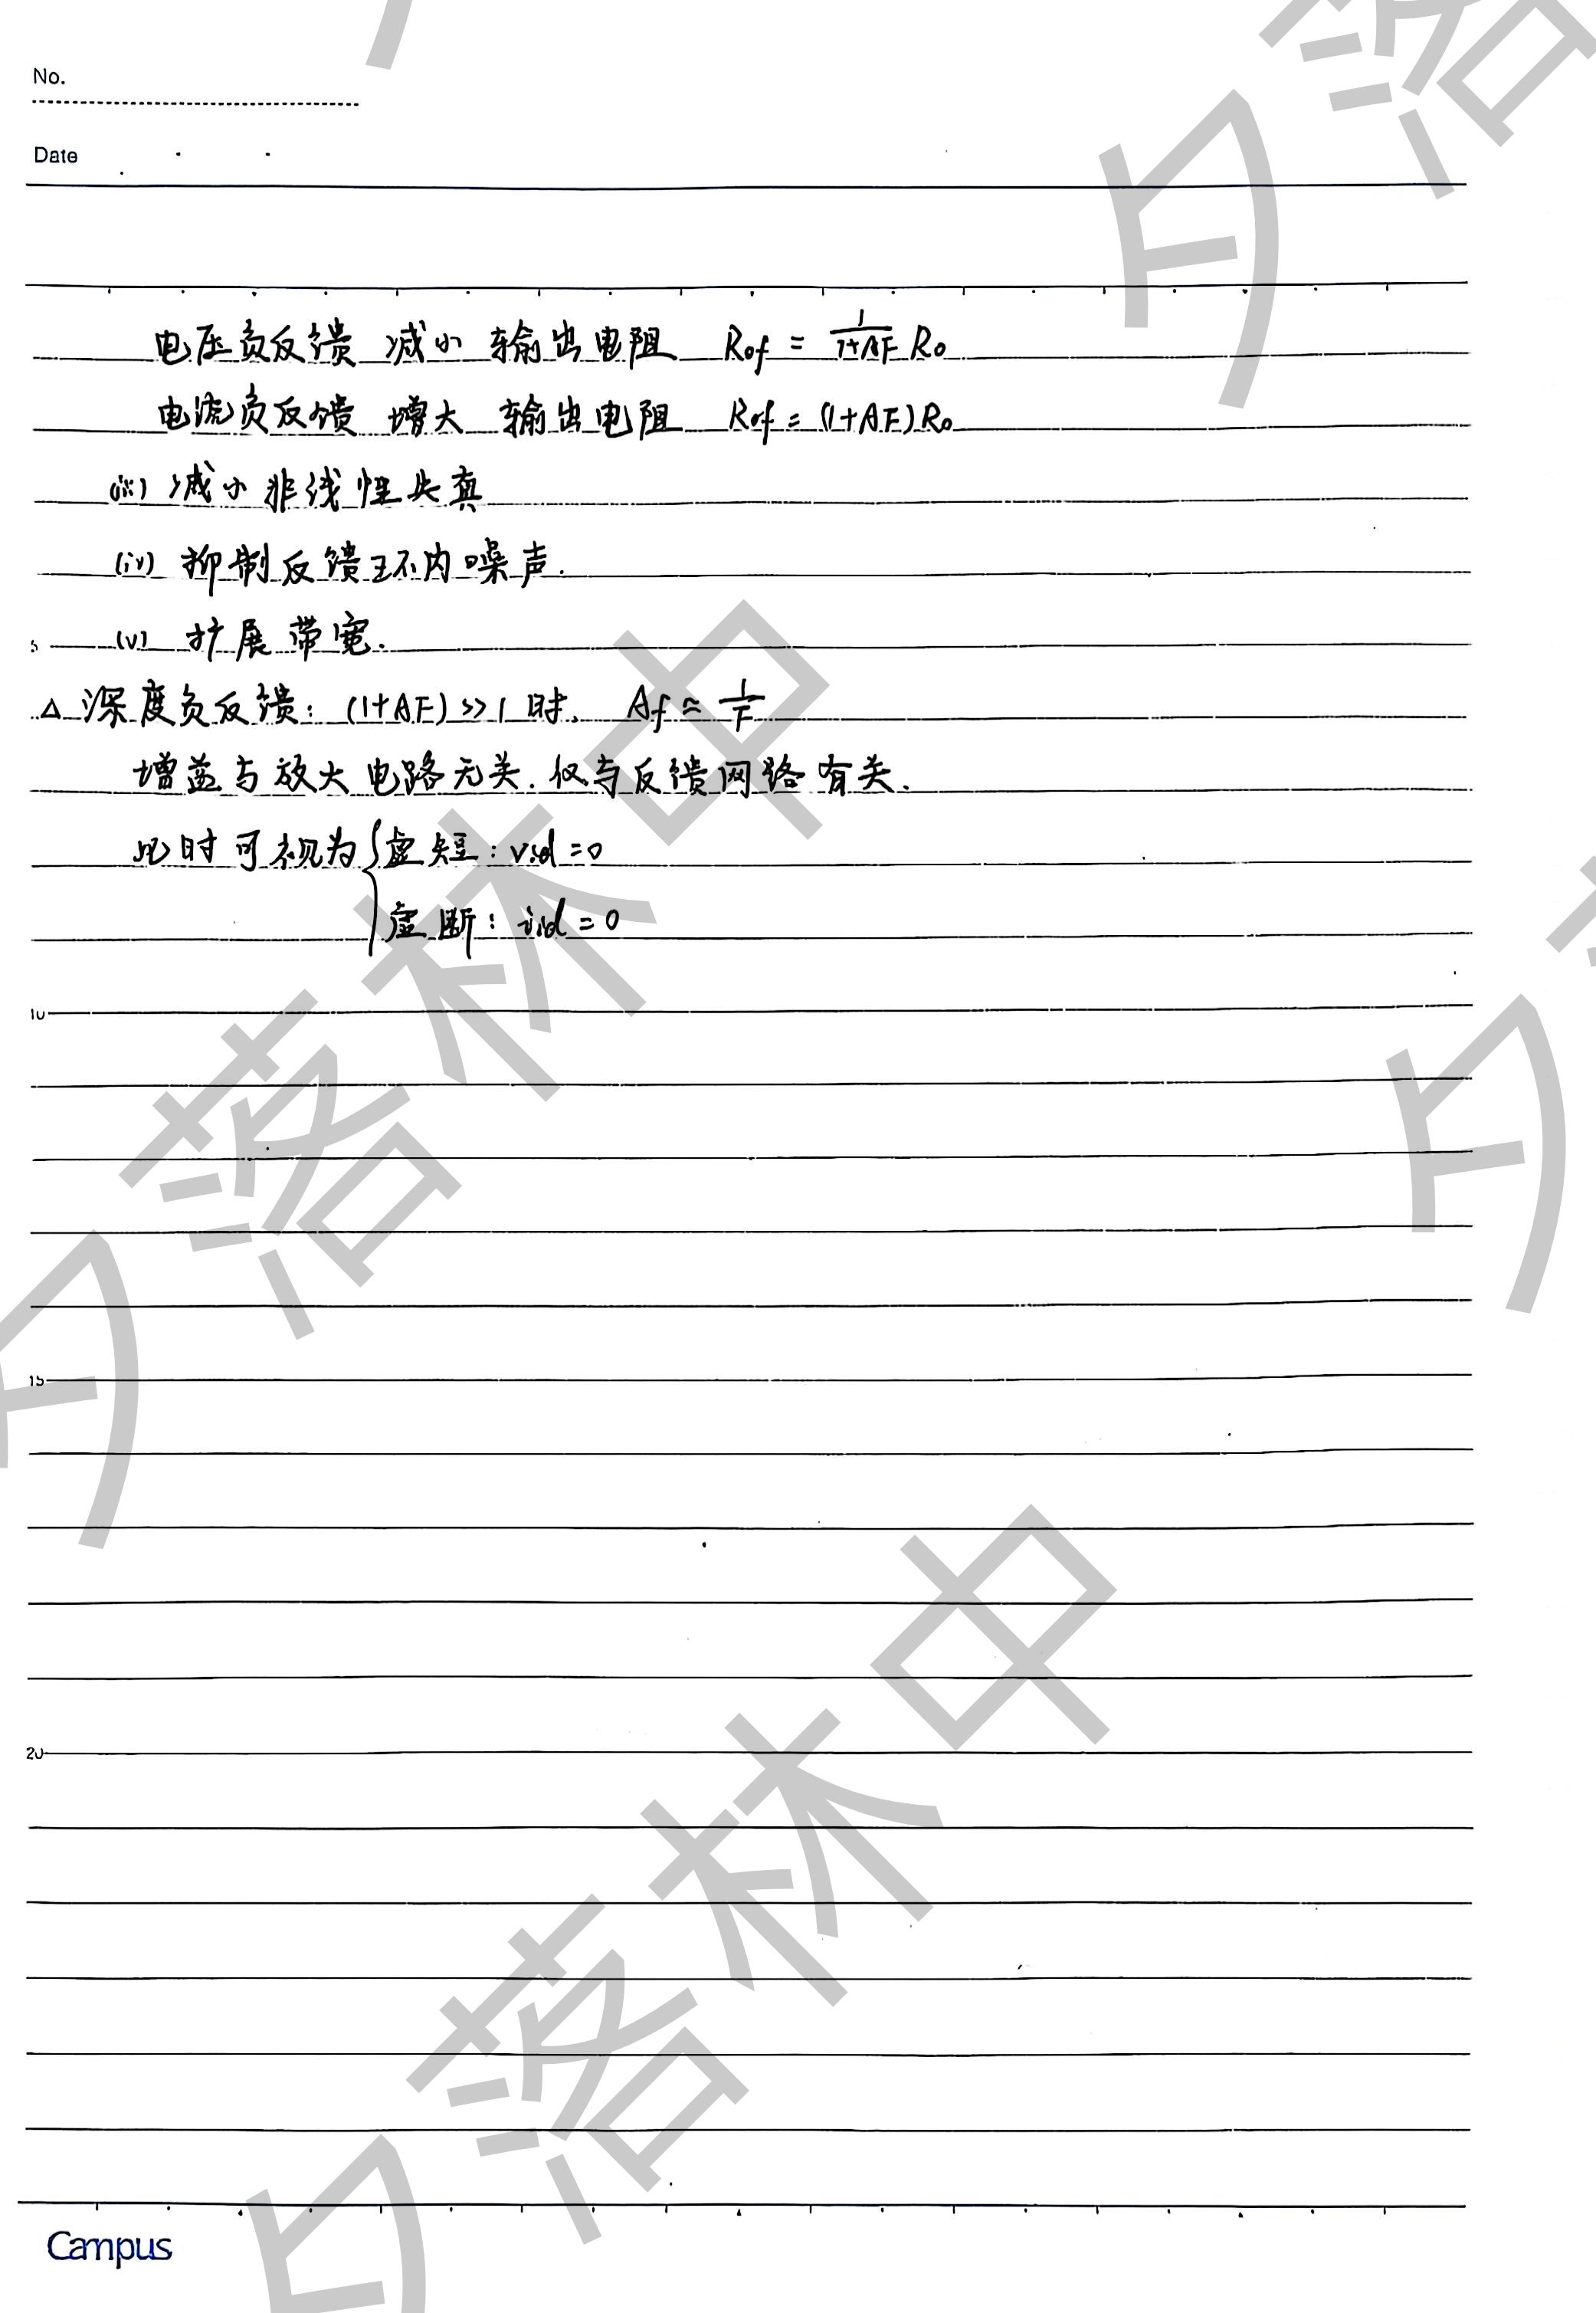 No.
Date
电压负反馈 减小 输出电阻 Rof = 1/(1+AF) Ro
电流负反馈 增大 输出电阻 Rof = (1+AF)Ro
(iii) 减小非线性失真
(iv) 抑制反馈环内噪声.
5 (v) 扩展带宽.
△ 深度负反馈: (1+AF)>>1 时, Af ≈ 1/F
增益与放大电路无关, 仅与反馈网络有关.
此时可视为 { 虚短: vid = 0
虚断: iid = 0
10
15
20
Campus
夕落林中
夕落林中
夕落
夕